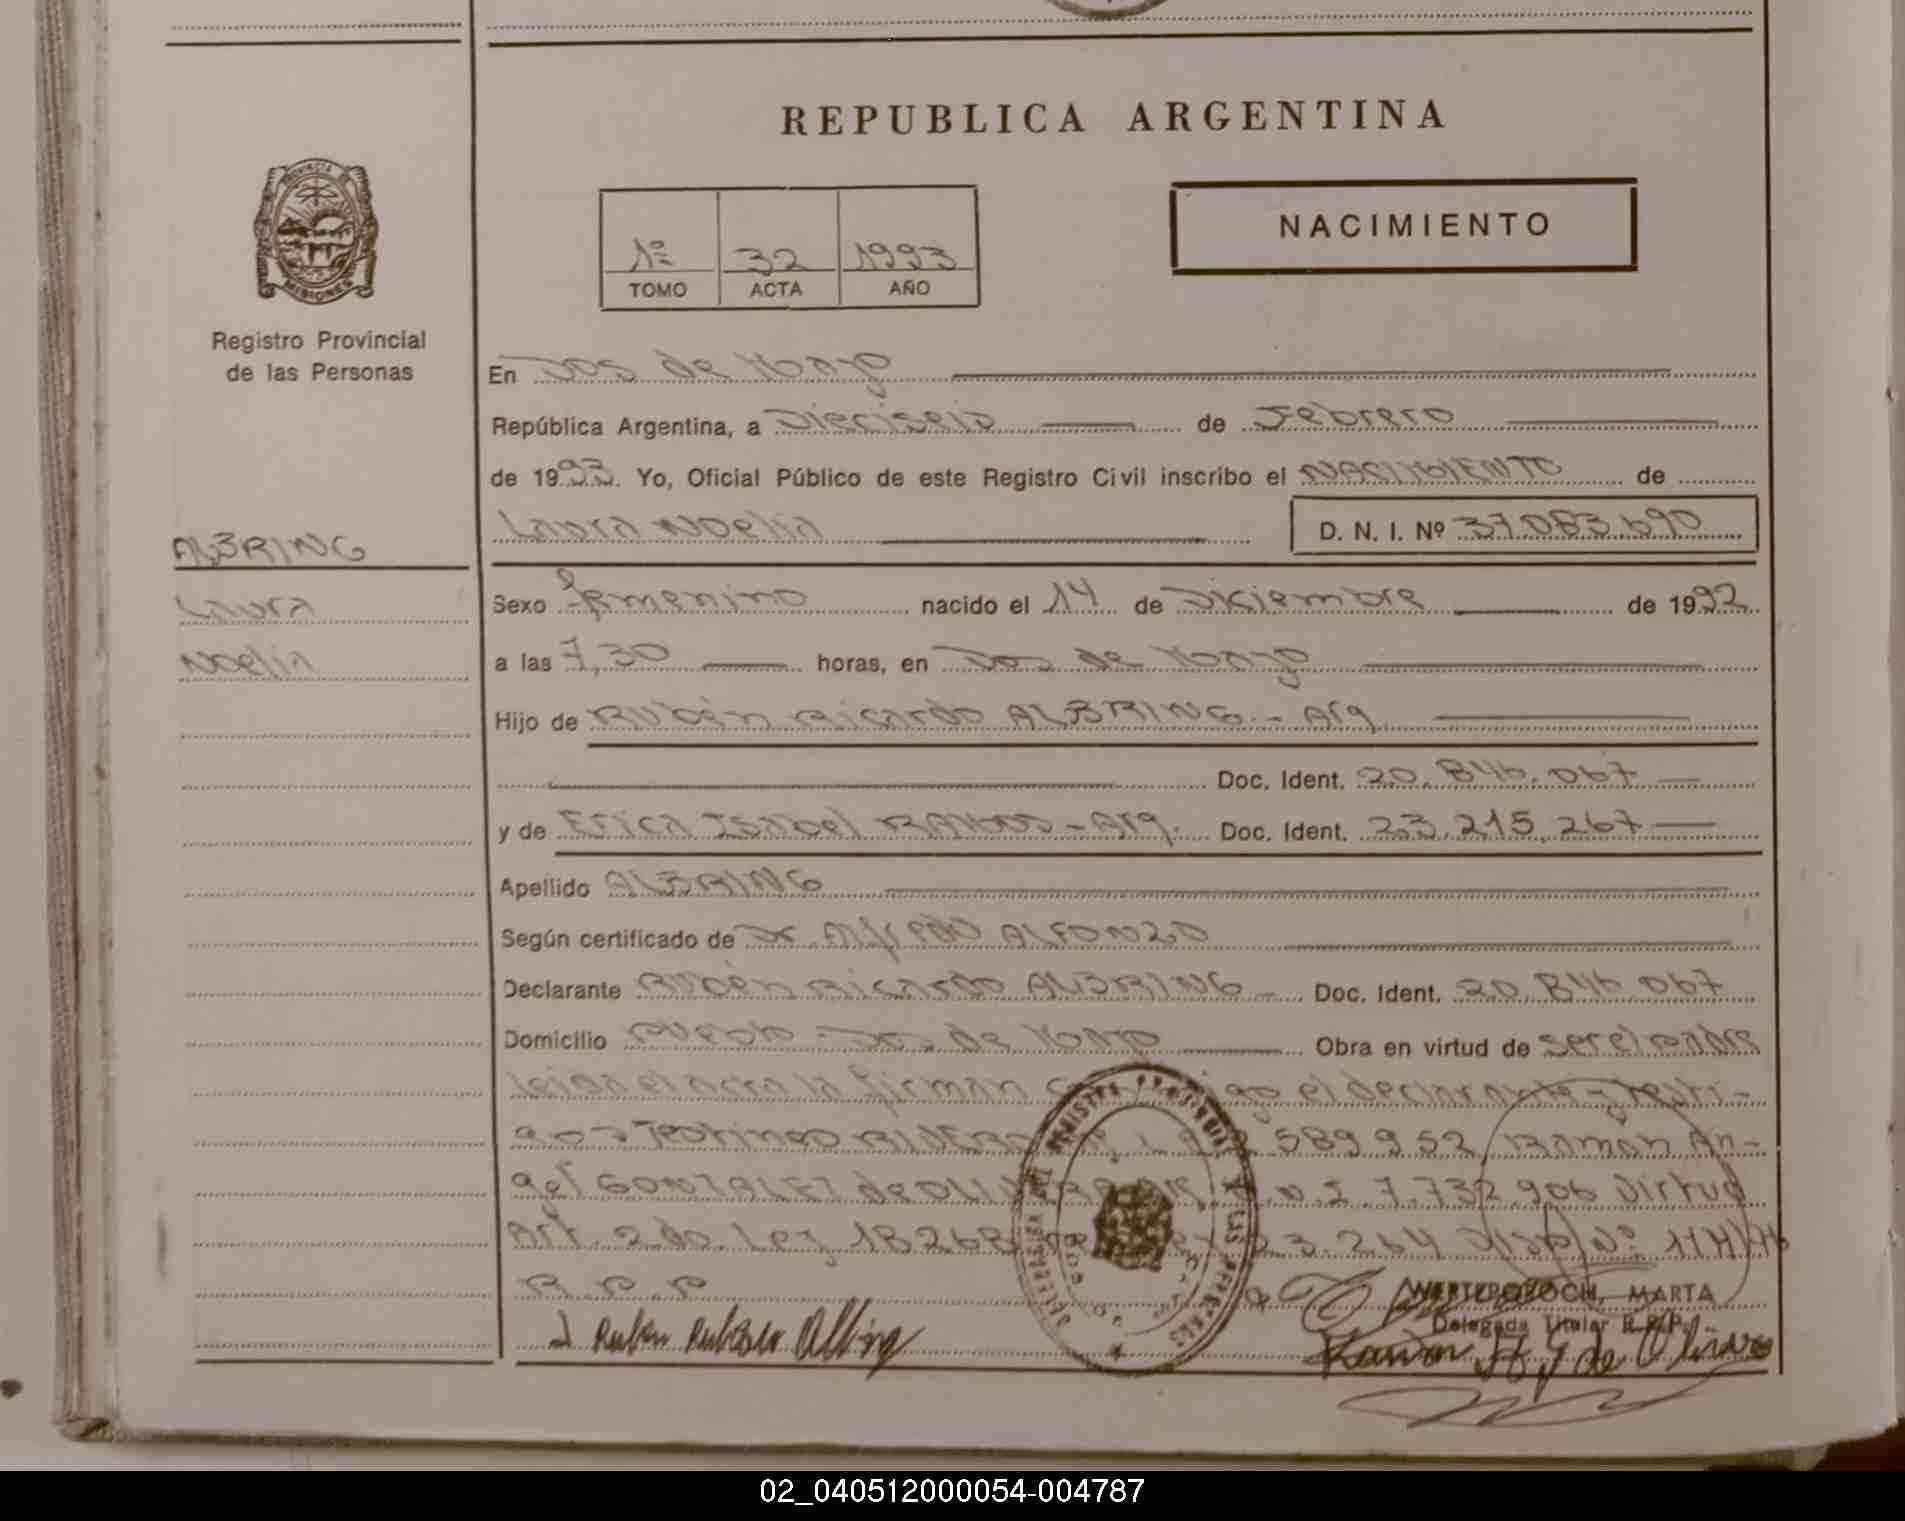 REPUBLICA ARGENTINA
PROVINCIA DE
MISIONES
Registro Provincial
de las Personas
1º 32 1993
TOMO ACTA AÑO
NACIMIENTO
En Dos de Mayo
República Argentina, a Dieciseis de Febrero
de 1993. Yo, Oficial Público de este Registro Civil inscribo el NACIMIENTO de
Laura Noelia D. N. I. Nº 37.083.690
ALBRING
Laura
Noelia
Sexo femenino nacido el 14 de Diciembre de 1992
a las 7,30 horas, en Dos de Mayo
Hijo de Rubén Ricardo ALBRING - Arg
Doc. Ident. 20.846.067
y de Erica Isabel RAMOS - Arg. Doc. Ident. 23.215.267
Apellido ALBRING
Según certificado de Dr Alfredo ALFONZO
Declarante Rubén Ricardo ALBRING Doc. Ident. 20.846.067
Domicilio Pueblo - Dos de Mayo Obra en virtud de ser el padre
leida el acta la firman el declarante - testi-
gos 589.952 Ramón An-
gel GONZALEZ de OLI 7.732.906 Virtud
Art. 2do. Ley 18268 23.264 Disp/Nº 114/46
R.P.P
Ruben Albring
MARTA
Delegada Titular R.P.P.
Ramon A G de Oliver
02_040512000054-004787